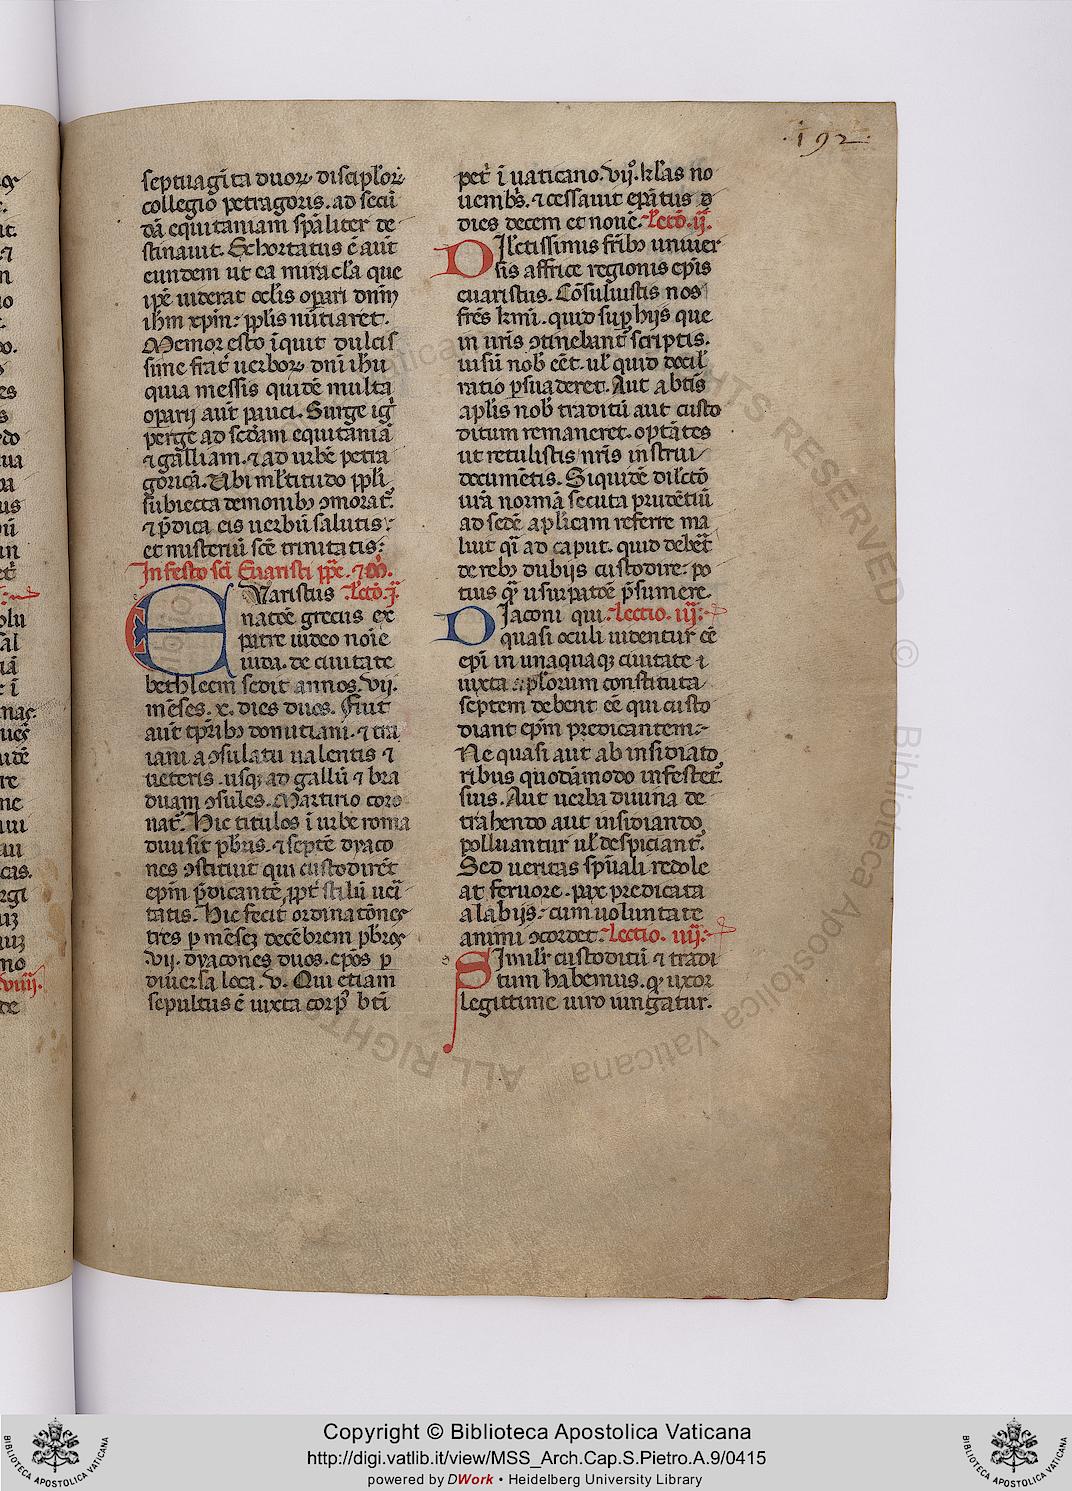 .192.
septuaginta duoꝝ discipłoꝝ
collegio petragoris. ad secū
dā equitaniam spāliter de
stinauit. Exhortatus ē aūt
eundem ut ea miracła que
ip̄e uiderat oclis opari dnm̄
ihm xp̄m: pp̄lis nūtiaret.
Memor esto inquit dulcis
sime frat̄ uerboꝝ dnī ihu
quia messis quidē multa
oparij aūt pauci. Surge ig̓
perge ad scd̄am equitaniā
⁊ galliam. ⁊ ad urbē petra
goricā. Ubi mltitudo pp̄li
subiecta demonibꝰ ꝯmorat̄.
⁊ p̄dica eis uerbū salutis:
et misteriū scē trinitatis:
In festo scī Euaristi pp̄e. ⁊ m̄.
EUaristus Lectō. j.
natōē grecus ex
patre iudeo noīe
iuda. de ciuitate
bethleem sedit annos. vij.
mēses. x. dies duos. Fuit
aūt tp̄ribꝰ domitiani. ⁊ tra
iani a ꝯsulatu ualentis ⁊
ueteris. usqꝫ ad gallū ⁊ bra
duam ꝯsules. Martirio coro
nat̄. Hic titulos ī urbe roma
diuisit p̄bris. ⁊ septē dyaco
nes ꝯstituit qui custodirēt
ep̄m p̄dicantē, ꝓpt̄ stilū ueri
tatis. Hic fecit ordinatōnes
tres p mēseꝫ decēbrem p̄bros
.vij. dyacones duos. ep̄os p
diuersa loca. v. Qui etiam
sepultus ē iuxta corpꝰ btī
pet̄ ī uaticano. vij. kłas no
uembs̄. ⁊ cessauit ep̄atus d
dies decem et nouē. Lectō. ij.
DIlectissimus fr̄ibꝰ uniuer
sis affrice regionis ep̄is
euaristus. Cōsuluistis nos
frēs kmī. quid sup hijs que
in ur̄is ꝯtinebant̄ scriptis.
uisū nob̄ eēt. uł quid docił
ratio psuaderet. Aut ab tīs
apłis nob̄ traditū aut custo
ditum remaneret. optātes
ut retulistis nr̄is instrui
documētis. Siquidē dilectō
ur̄a normā secuta prudētiū
ad sedē apłicam referre ma
luit q̄i ad caput. quid debēt̄
de rebꝰ dubijs custodire: po
tius qꝫ usurpatōē p̄sumere.
DIaconi qui. Lectio. iij:
quasi oculi uidentur eē
ep̄i in unaquaqꝫ ciuitate ⁊
iuxta apłorum constituta
septem debent eē qui custo
diant ep̄m predicantem:
Ne quasi aut ab insidiato
ribus quodāmodo infestet̄
suis. Aut uerba diuina de
trahendo aut insidiando,
polluantur uł despiciant̄.
Sed ueritas spūali redole
at feruore. pax predicata
a labijs: cum uoluntate
animi ꝯcordet. Lectio. iiij:
SImilr custoditū ⁊ tradi
tum habemus. qꝫ uxor
legittime uiro iungatur.
ALL RIGHTS RESERVED © Biblioteca Apostolica Vaticana
Copyright © Biblioteca Apostolica Vaticana
http://digi.vatlib.it/view/MSS_Arch.Cap.S.Pietro.A.9/0415
powered by DWork • Heidelberg University Library
BIBLIOTECA APOSTOLICA VATICANA
BIBLIOTECA APOSTOLICA VATICANA